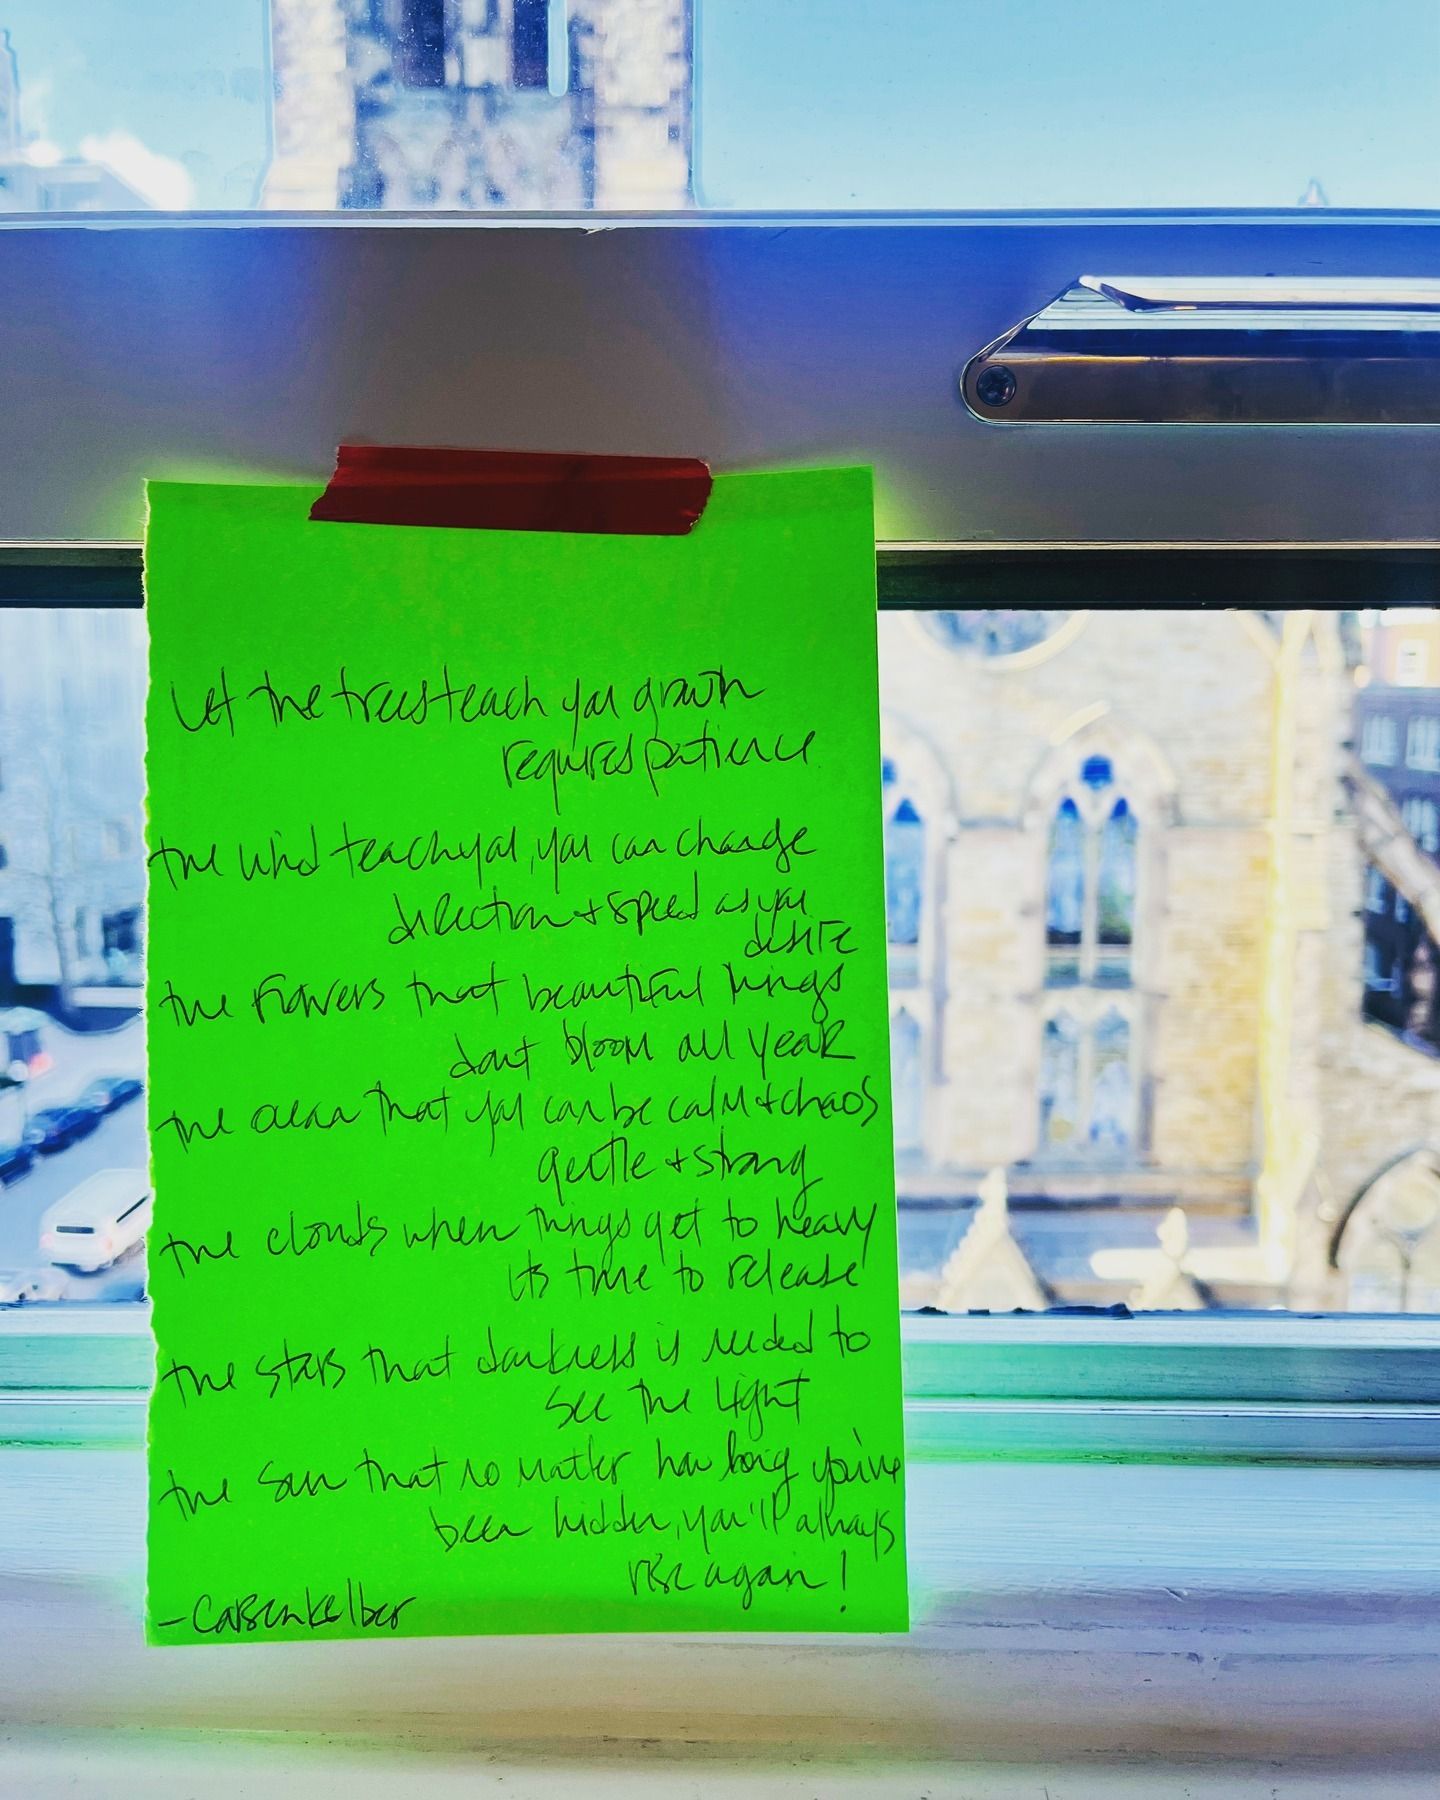 Let the trees teach you growth
requires patience
the wind teach you, you can change
direction + speed as you
desire
the Flowers that beautiful things
dont bloom all year
the ocean that you can be calm + chaos
gentle + strong
the clouds when things get to heavy
its time to release
the stars that darkness is needed to
see the light
the sun that no matter how long you've
been hidden, you'll always
rise again!
- Carsenkelber